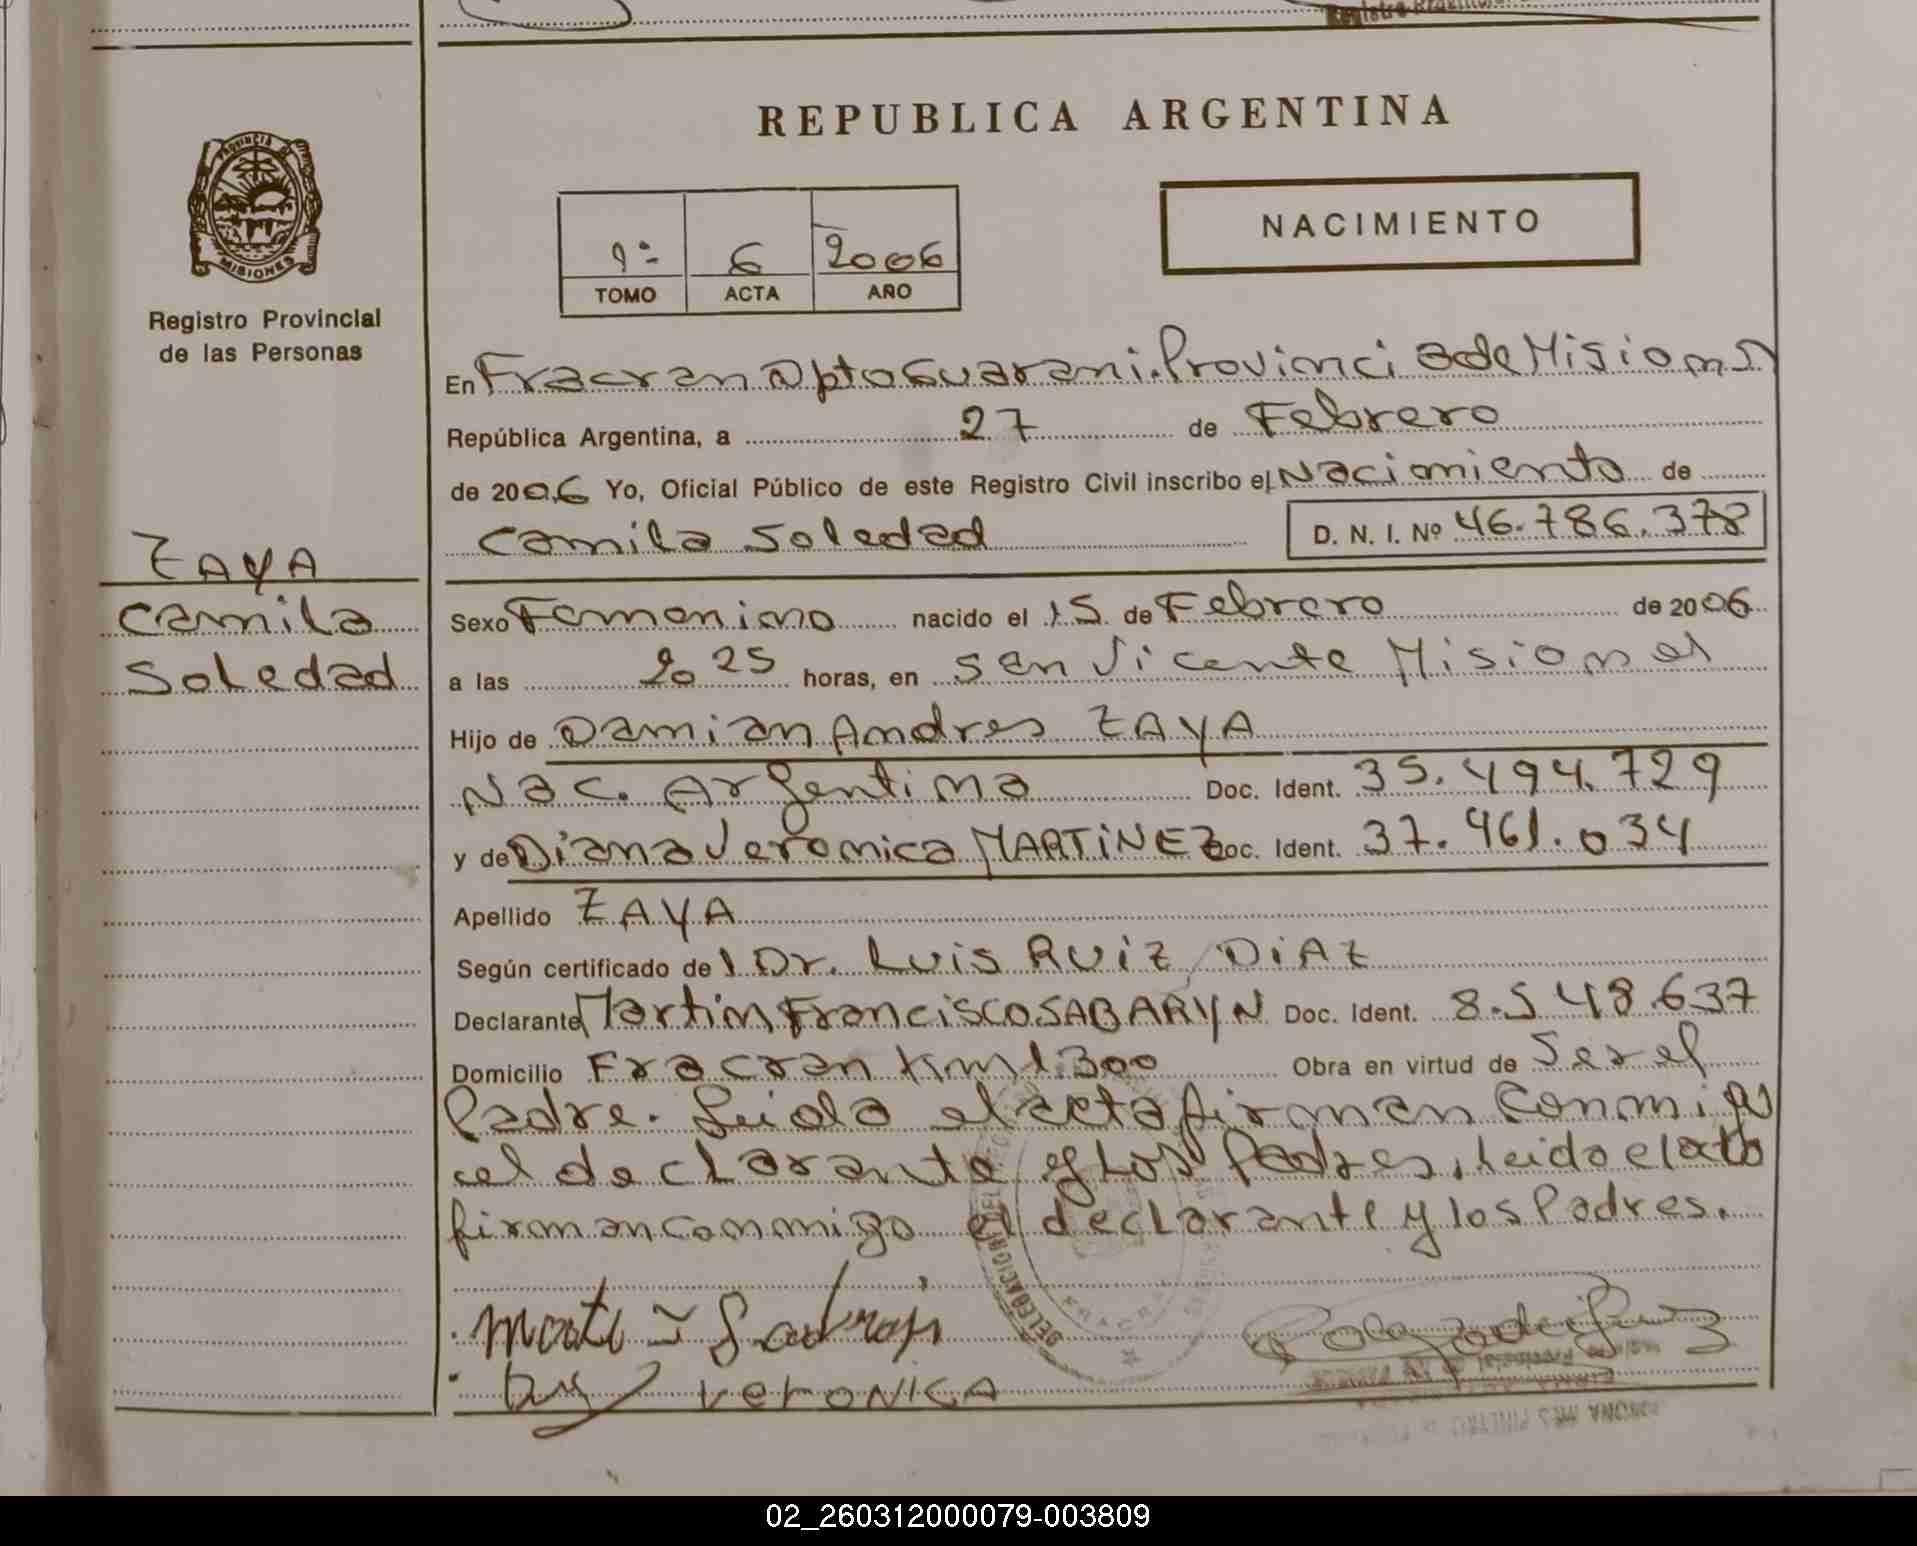 REPUBLICA ARGENTINA
PROVINCIA DE
MISIONES
Registro Provincial
de las Personas
NACIMIENTO
1º 6 2006
TOMO ACTA AÑO
En Fracran Dpto Guarani. Provincia de Misiones
República Argentina, a 27 de Febrero
de 2006 Yo, Oficial Público de este Registro Civil inscribo el Nacimiento de
Camila Soledad D. N. I. Nº 46.786.378
ZAYA
Camila
Soledad
Sexo Femenino nacido el 15 de Febrero de 2006
a las 20 25 horas, en San Vicente Misiones
Hijo de Damian Andres ZAYA
Nac. Argentina Doc. Ident. 35.494.729
y de Diana Veronica MARTINEZ Doc. Ident. 37.461.034
Apellido ZAYA
Según certificado del Dr. Luis RUIZ DIAZ
Declarante Martin Francisco SABARYN Doc. Ident. 8.548.637
Domicilio Fracran Km 1.300 Obra en virtud de Ser el
Padre. Leida el acta firman conmigo
el declarante y los Padres, leido el acto
firman conmigo el declarante y los Padres.
VERONICA
02_260312000079-003809